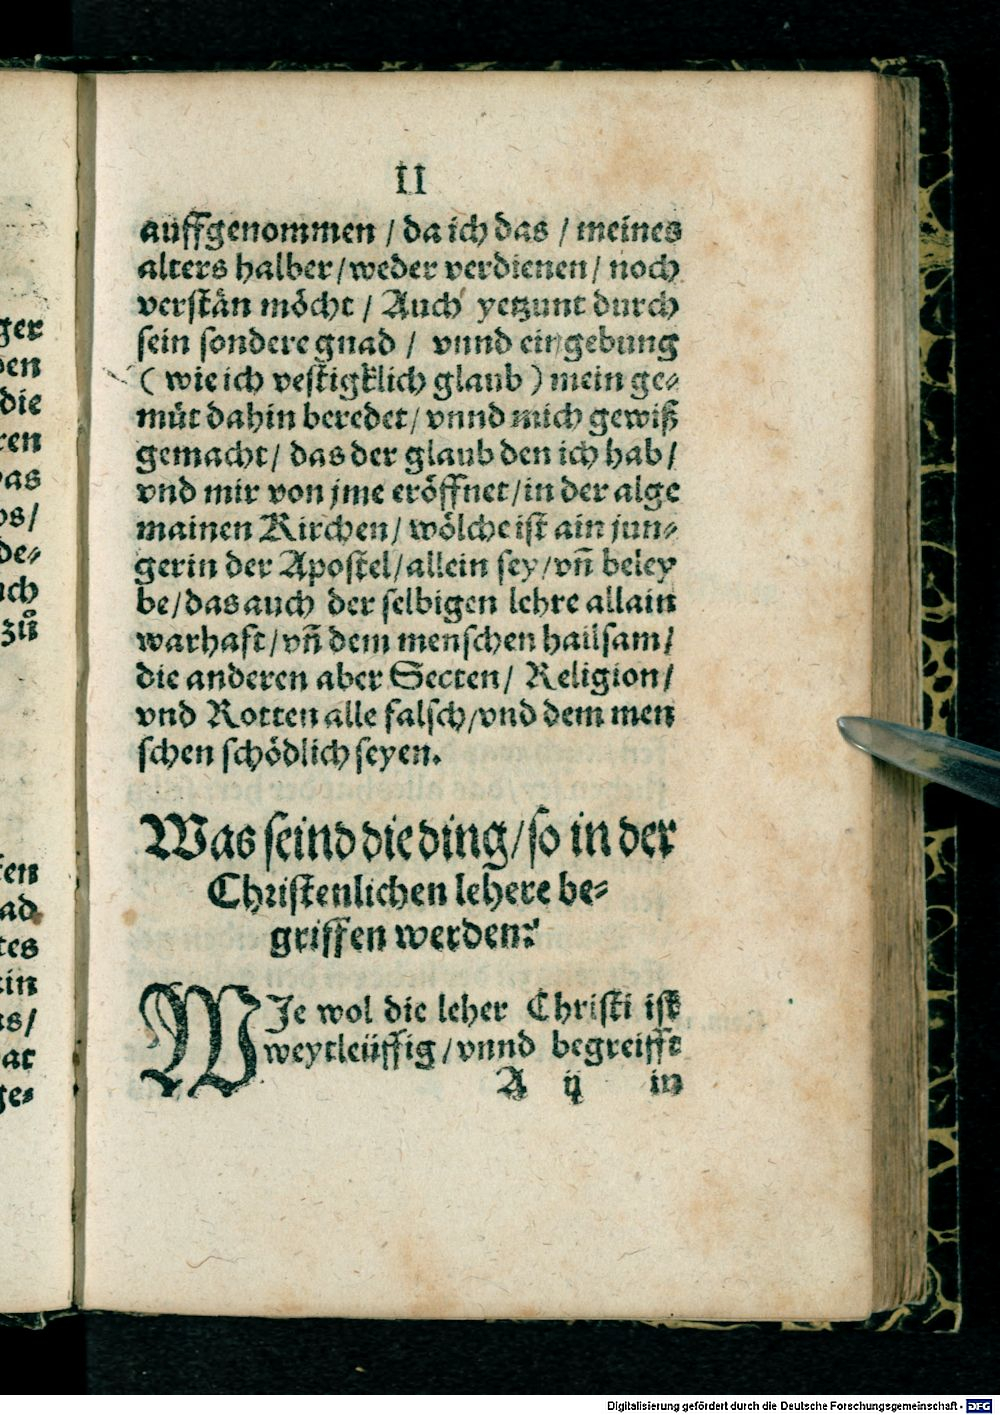 II
auffgenommen / da ich das / meines
alters halber / weder verdienen / noch
verstån möcht / Auch yetzunt durch
sein sondere gnad / vnnd eingebung
( wie ich vestigklich glaub ) mein ge⸗
müt dahin beredet / vnnd mich gewiß
gemacht / das der glaub den ich hab /
vnd mir von jme eröffnet / in der alge
mainen Kirchen / wölche ist ain jun⸗
gerin der Apostel / allein sey / vñ beley
be / das auch der selbigen lehre allain
warhaft / vñ dem menschen hailsam /
die anderen aber Secten / Religion /
vnd Rotten alle falsch / vnd dem men
schen schödlich seyen.
Was seind die ding / so in der
Christenlichen lehere be⸗
griffen werden?
WJe wol die leher Christi ist
weytleüffig / vnnd begreifft
A ij in
ger
den
die
ren
was
de⸗
uch
zů
ten
tes
ein
ge⸗
Digitalisierung gefördert durch die Deutsche Forschungsgemeinschaft - DFG